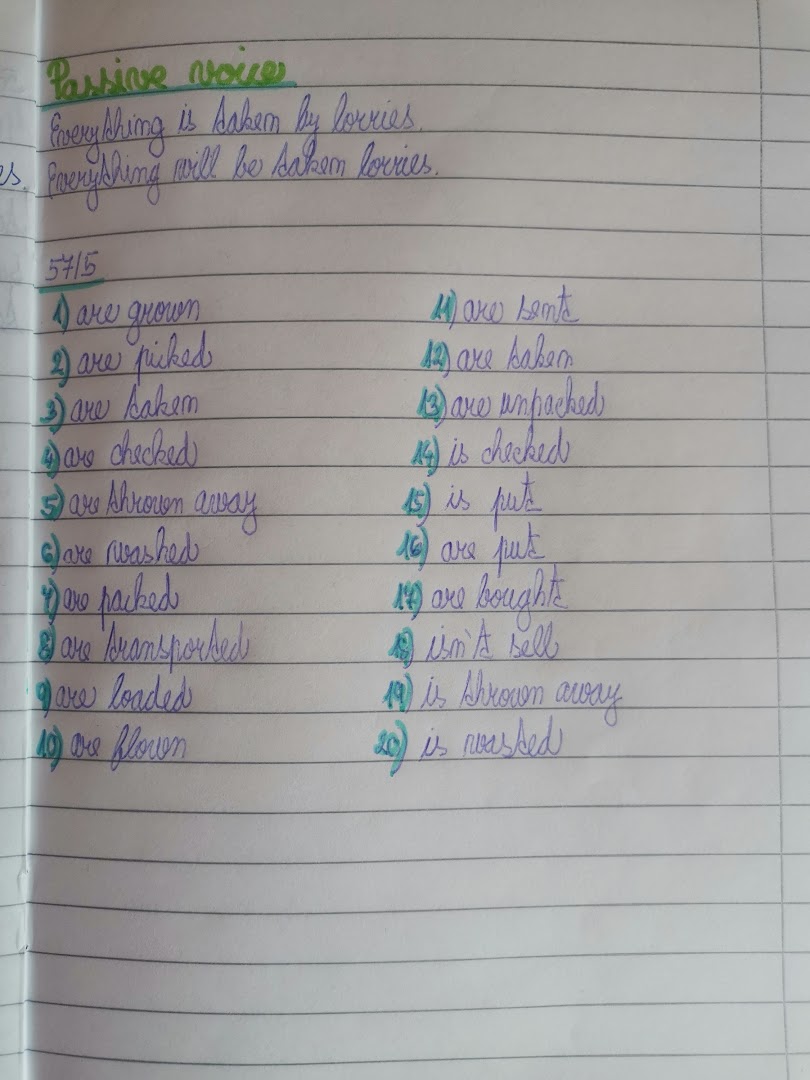 Passive voice
Everything is taken by lorries.
es. Everything will be taken lorries.
57/5
1) are grown
2) are picked
3) are taken
4) are checked
5) are thrown away
6) are washed
7) are packed
8) are transported
9) are loaded
10) are flown
11) are sent
12) are taken
13) are unpacked
14) is checked
15) is put
16) are put
17) are bought
18) isn't sell
19) is thrown away
20) is wasted